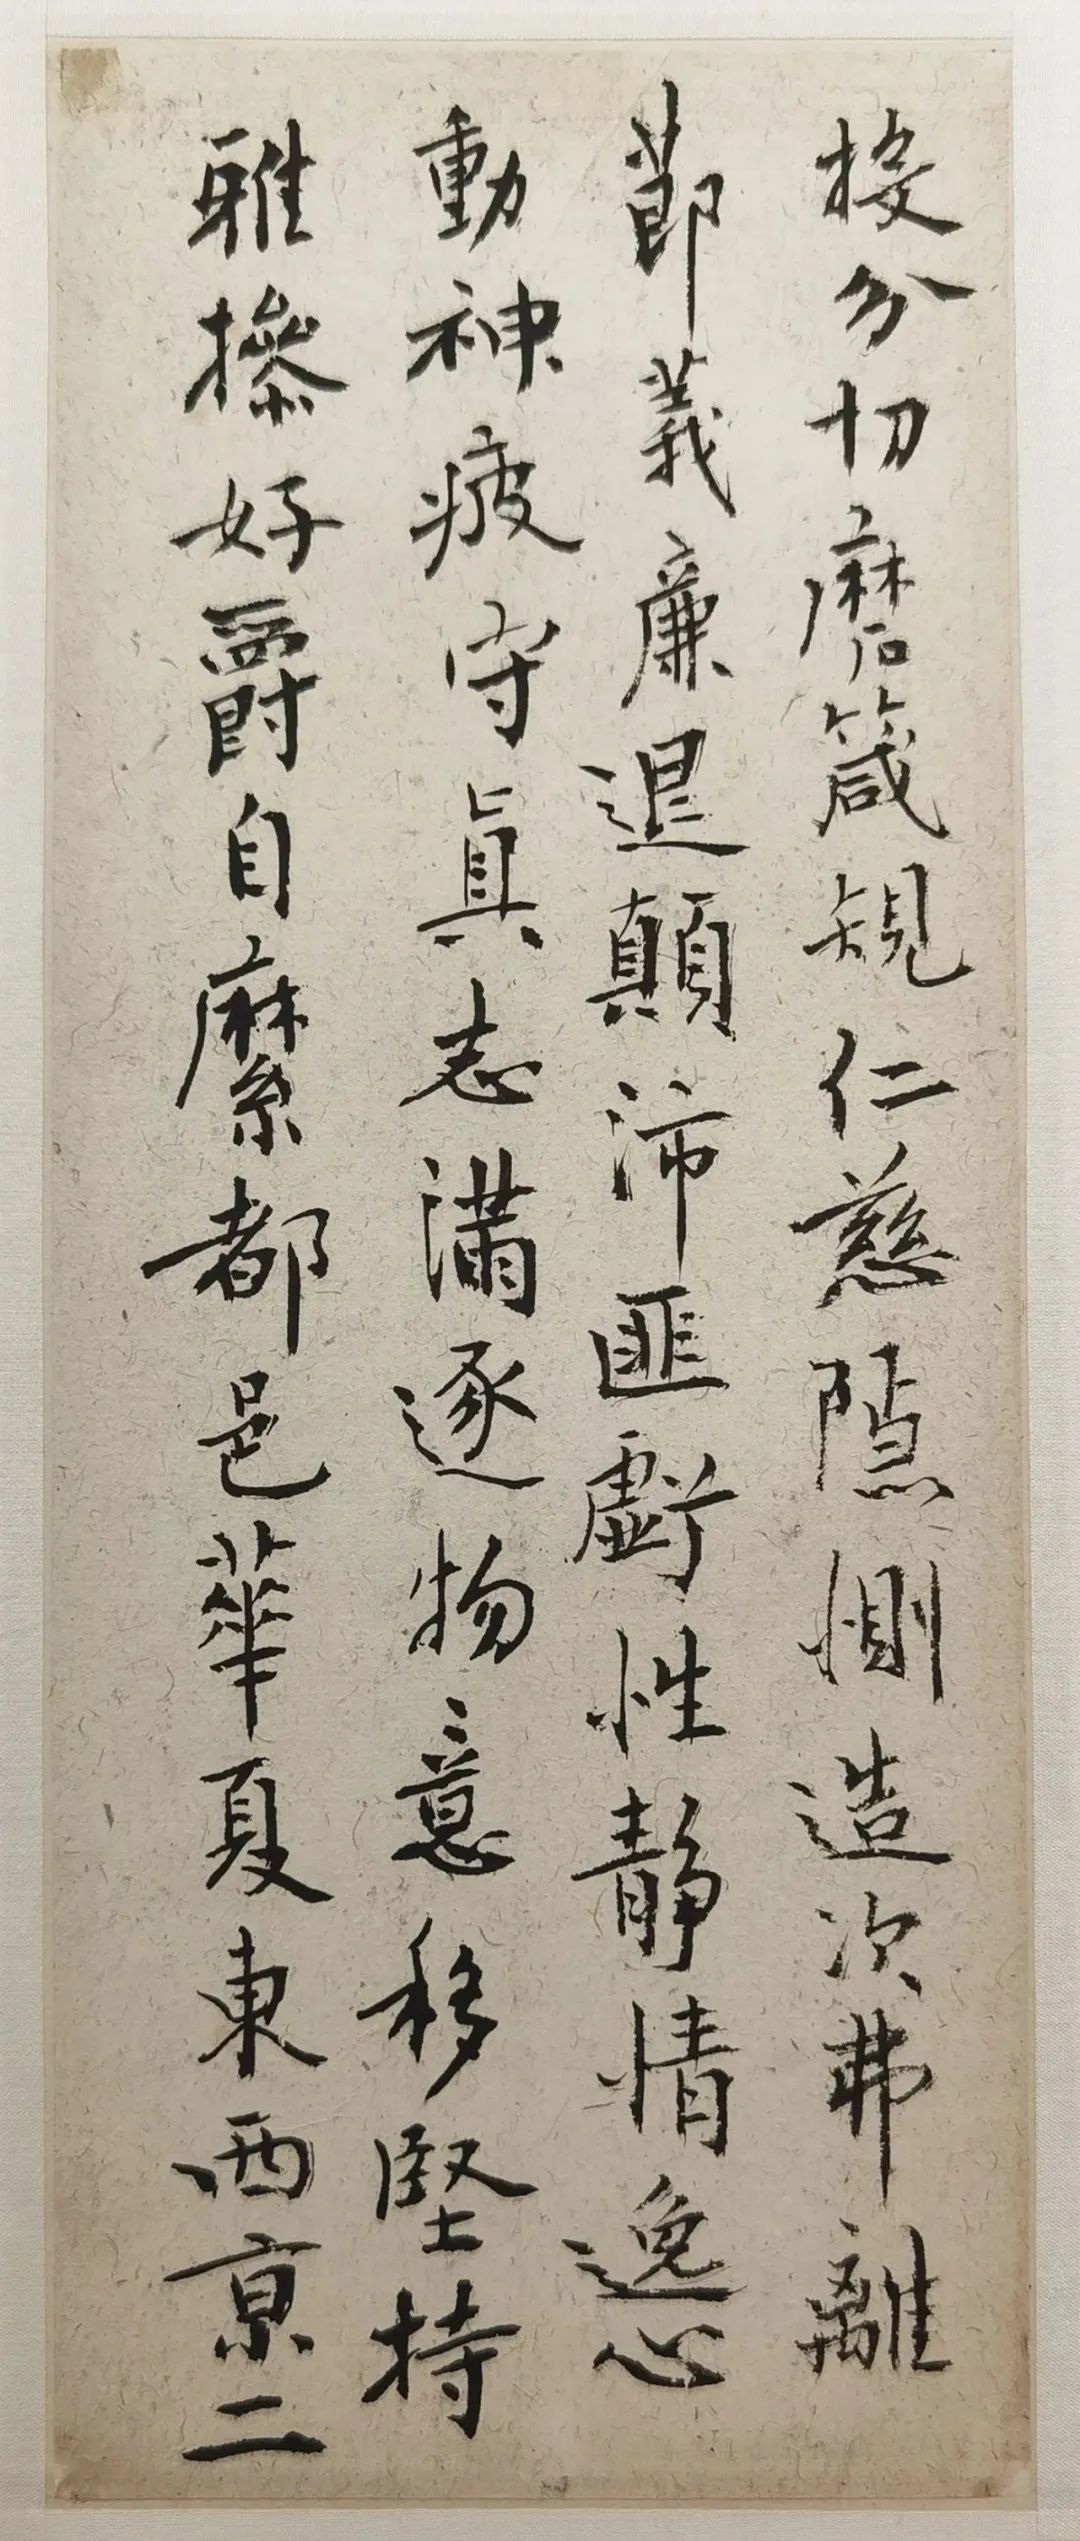 投分切磨箴規仁慈隱惻造次弗離
節義廉退顛沛匪虧性靜情逸心
動神疲守真志滿逐物意移堅持
雅操好爵自縻都邑華夏東西京二